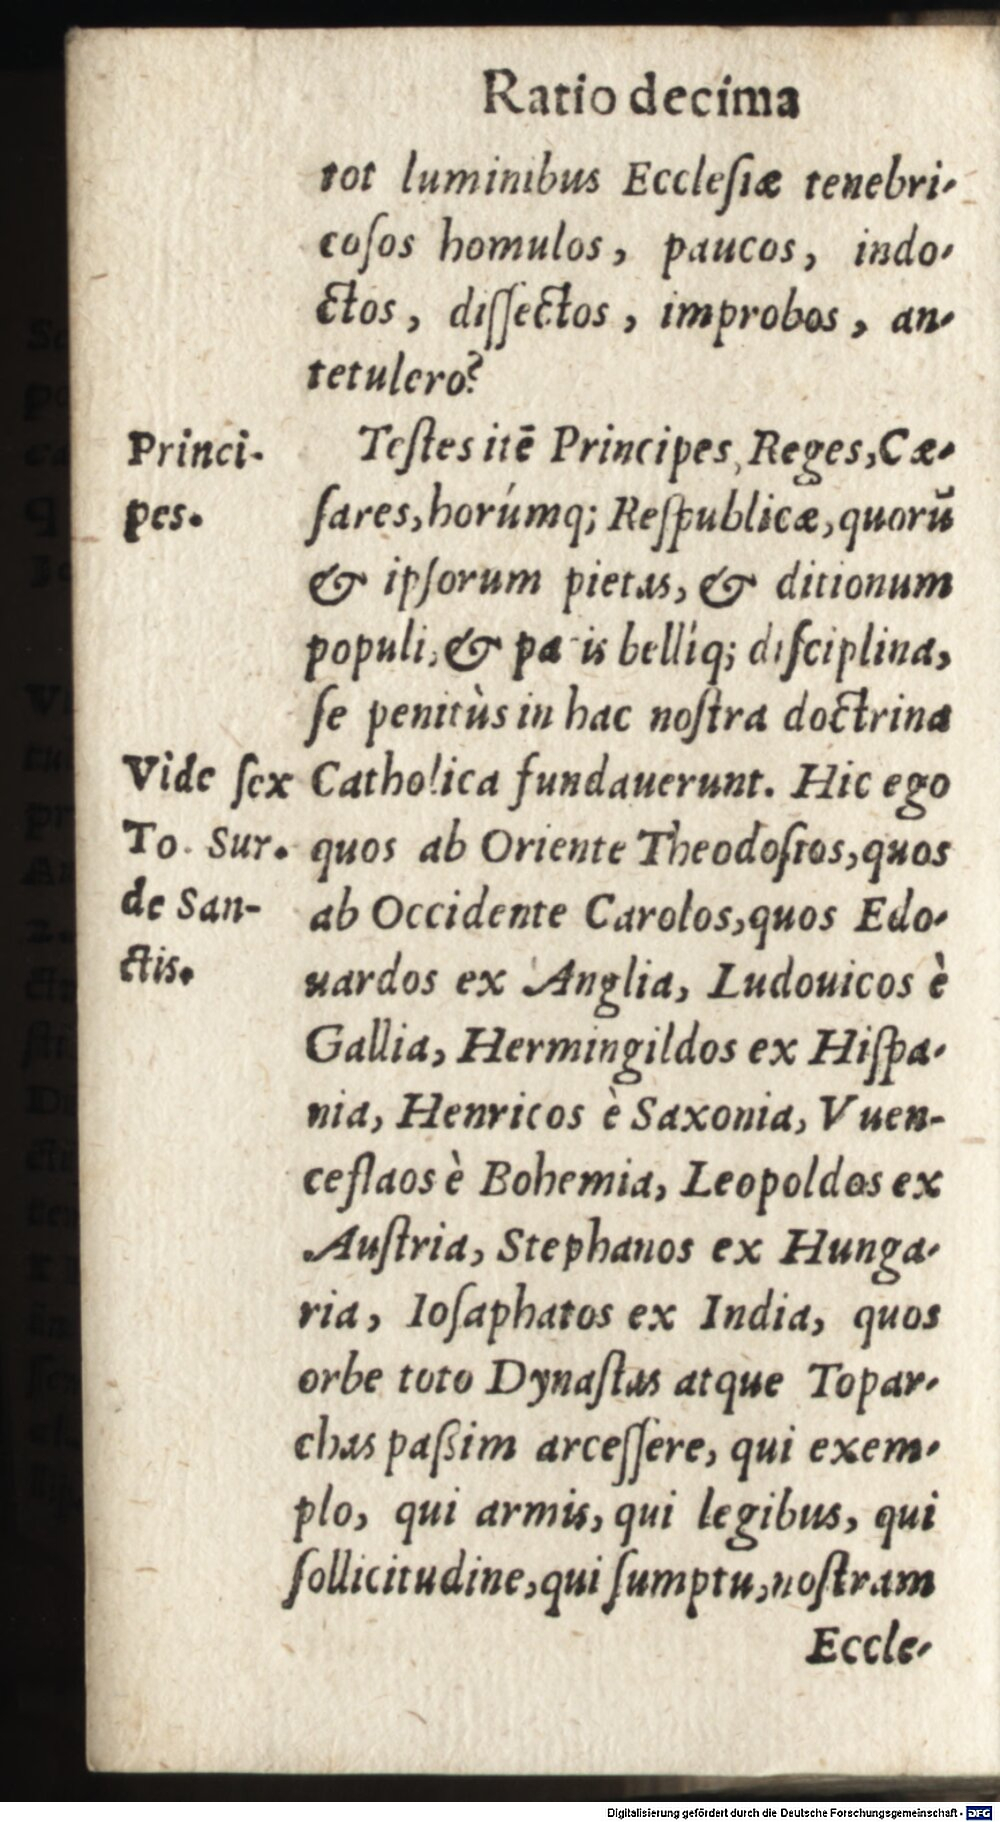 Ratio decima
tot luminibus Ecclesiæ tenebri-
cosos homulos, paucos, indo-
ctos, dissectos, improbos, an-
tetulero?
Princi-
pes.
Testes itē Principes, Reges, Cæ-
sares, horúmq; Respublicæ, quorū
& ipsorum pietas, & ditionum
populi, & pa is bellíq; disciplina,
se penitùs in hac nostra doctrina
Vide sex
To. Sur.
de San-
ctis.
Catholica fundauerunt. Hic ego
quos ab Oriente Theodosios, quos
ab Occidente Carolos, quos Edo-
uardos ex Anglia, Ludouicos è
Gallia, Hermingildos ex Hispa-
nia, Henricos è Saxonia, Vuen-
ceslaos è Bohemia, Leopoldos ex
Austria, Stephanos ex Hunga-
ria, Iosaphatos ex India, quos
orbe toto Dynastas atque Topar-
chas paßim arcessere, qui exem-
plo, qui armis, qui legibus, qui
sollicitudine, qui sumptu, nostram
Eccle-
Digitalisierung gefördert durch die Deutsche Forschungsgemeinschaft - DFG